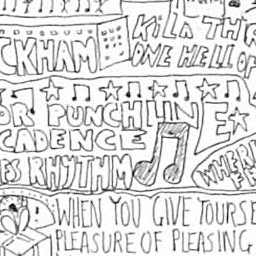 CKHAM
KILA THR
ONE HELL OF
OR PUNCHLINE
CADENCE
RHYTHM
WHERE
WHEN YOU GIVE YOURSE
PLEASURE OF PLEASING